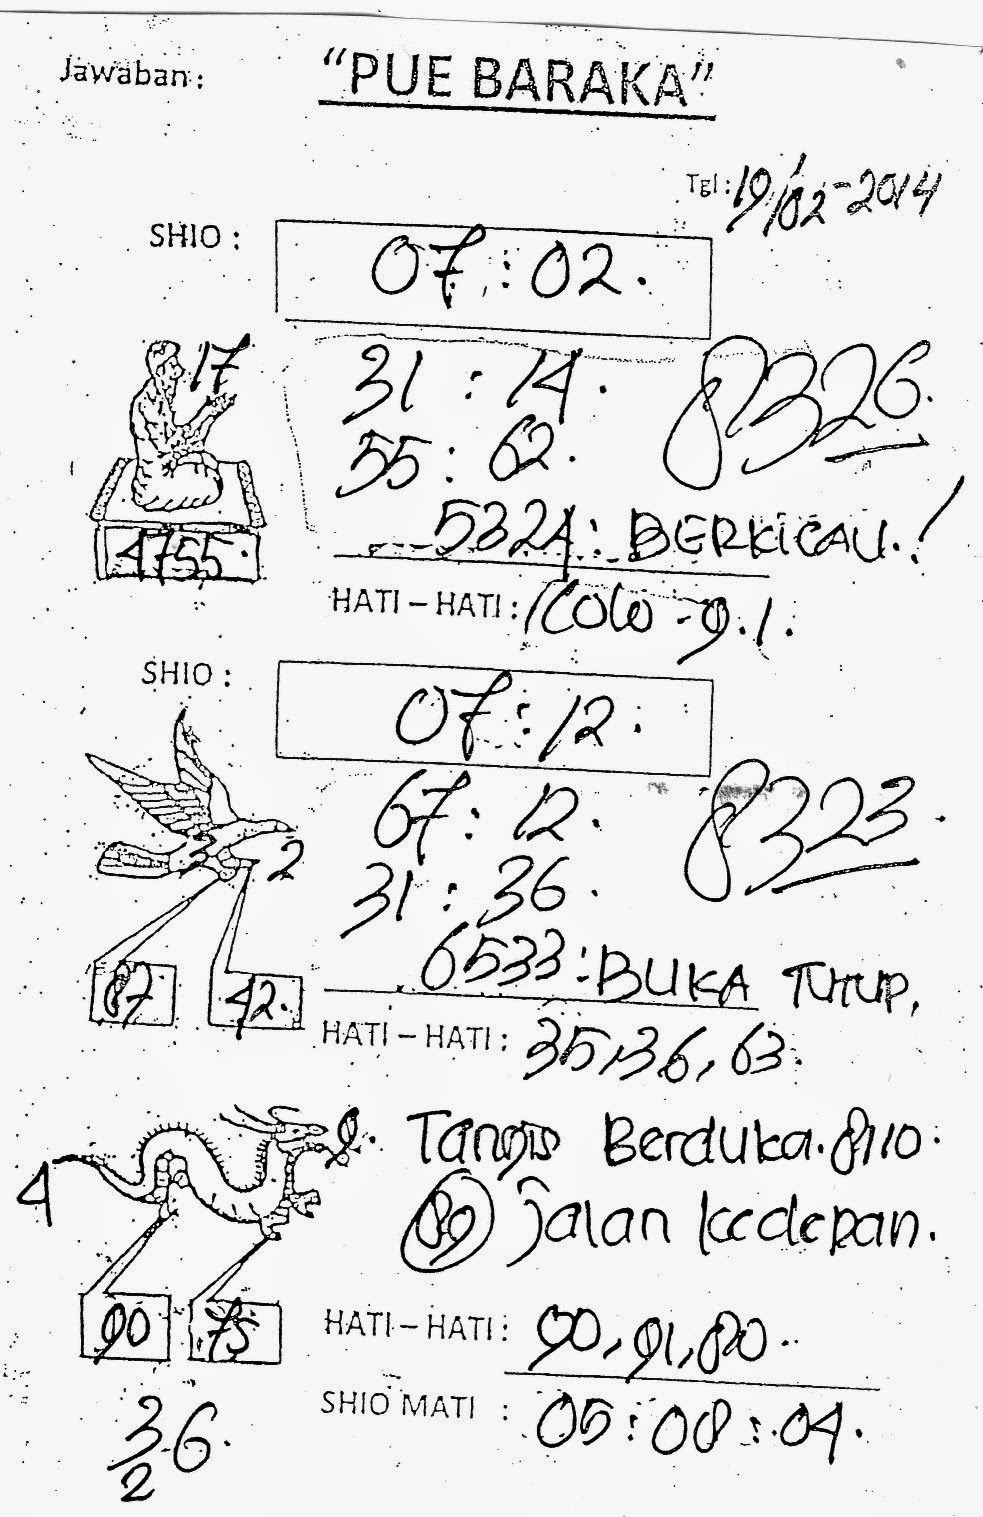 Jawaban :
"PUE BARAKA"
Tgl : 19/02-2014
SHIO :
07 : 02.
17
31 : 14.
8326.
55 : 62.
4755.
5324 : BERKICAU. !
HATI – HATI : 9.1.
SHIO :
07 : 12.
67 : 12.
8323.
3 2
31 : 36.
6533 : BUKA TUTUP,
87 42.
HATI – HATI : 35,36, 63.
4 9. Tangis Berduka. 8110.
89 jalan kedepan.
90 75
HATI – HATI : 90, 91, 80..
SHIO MATI : 05 : 08 : 04.
36.
2